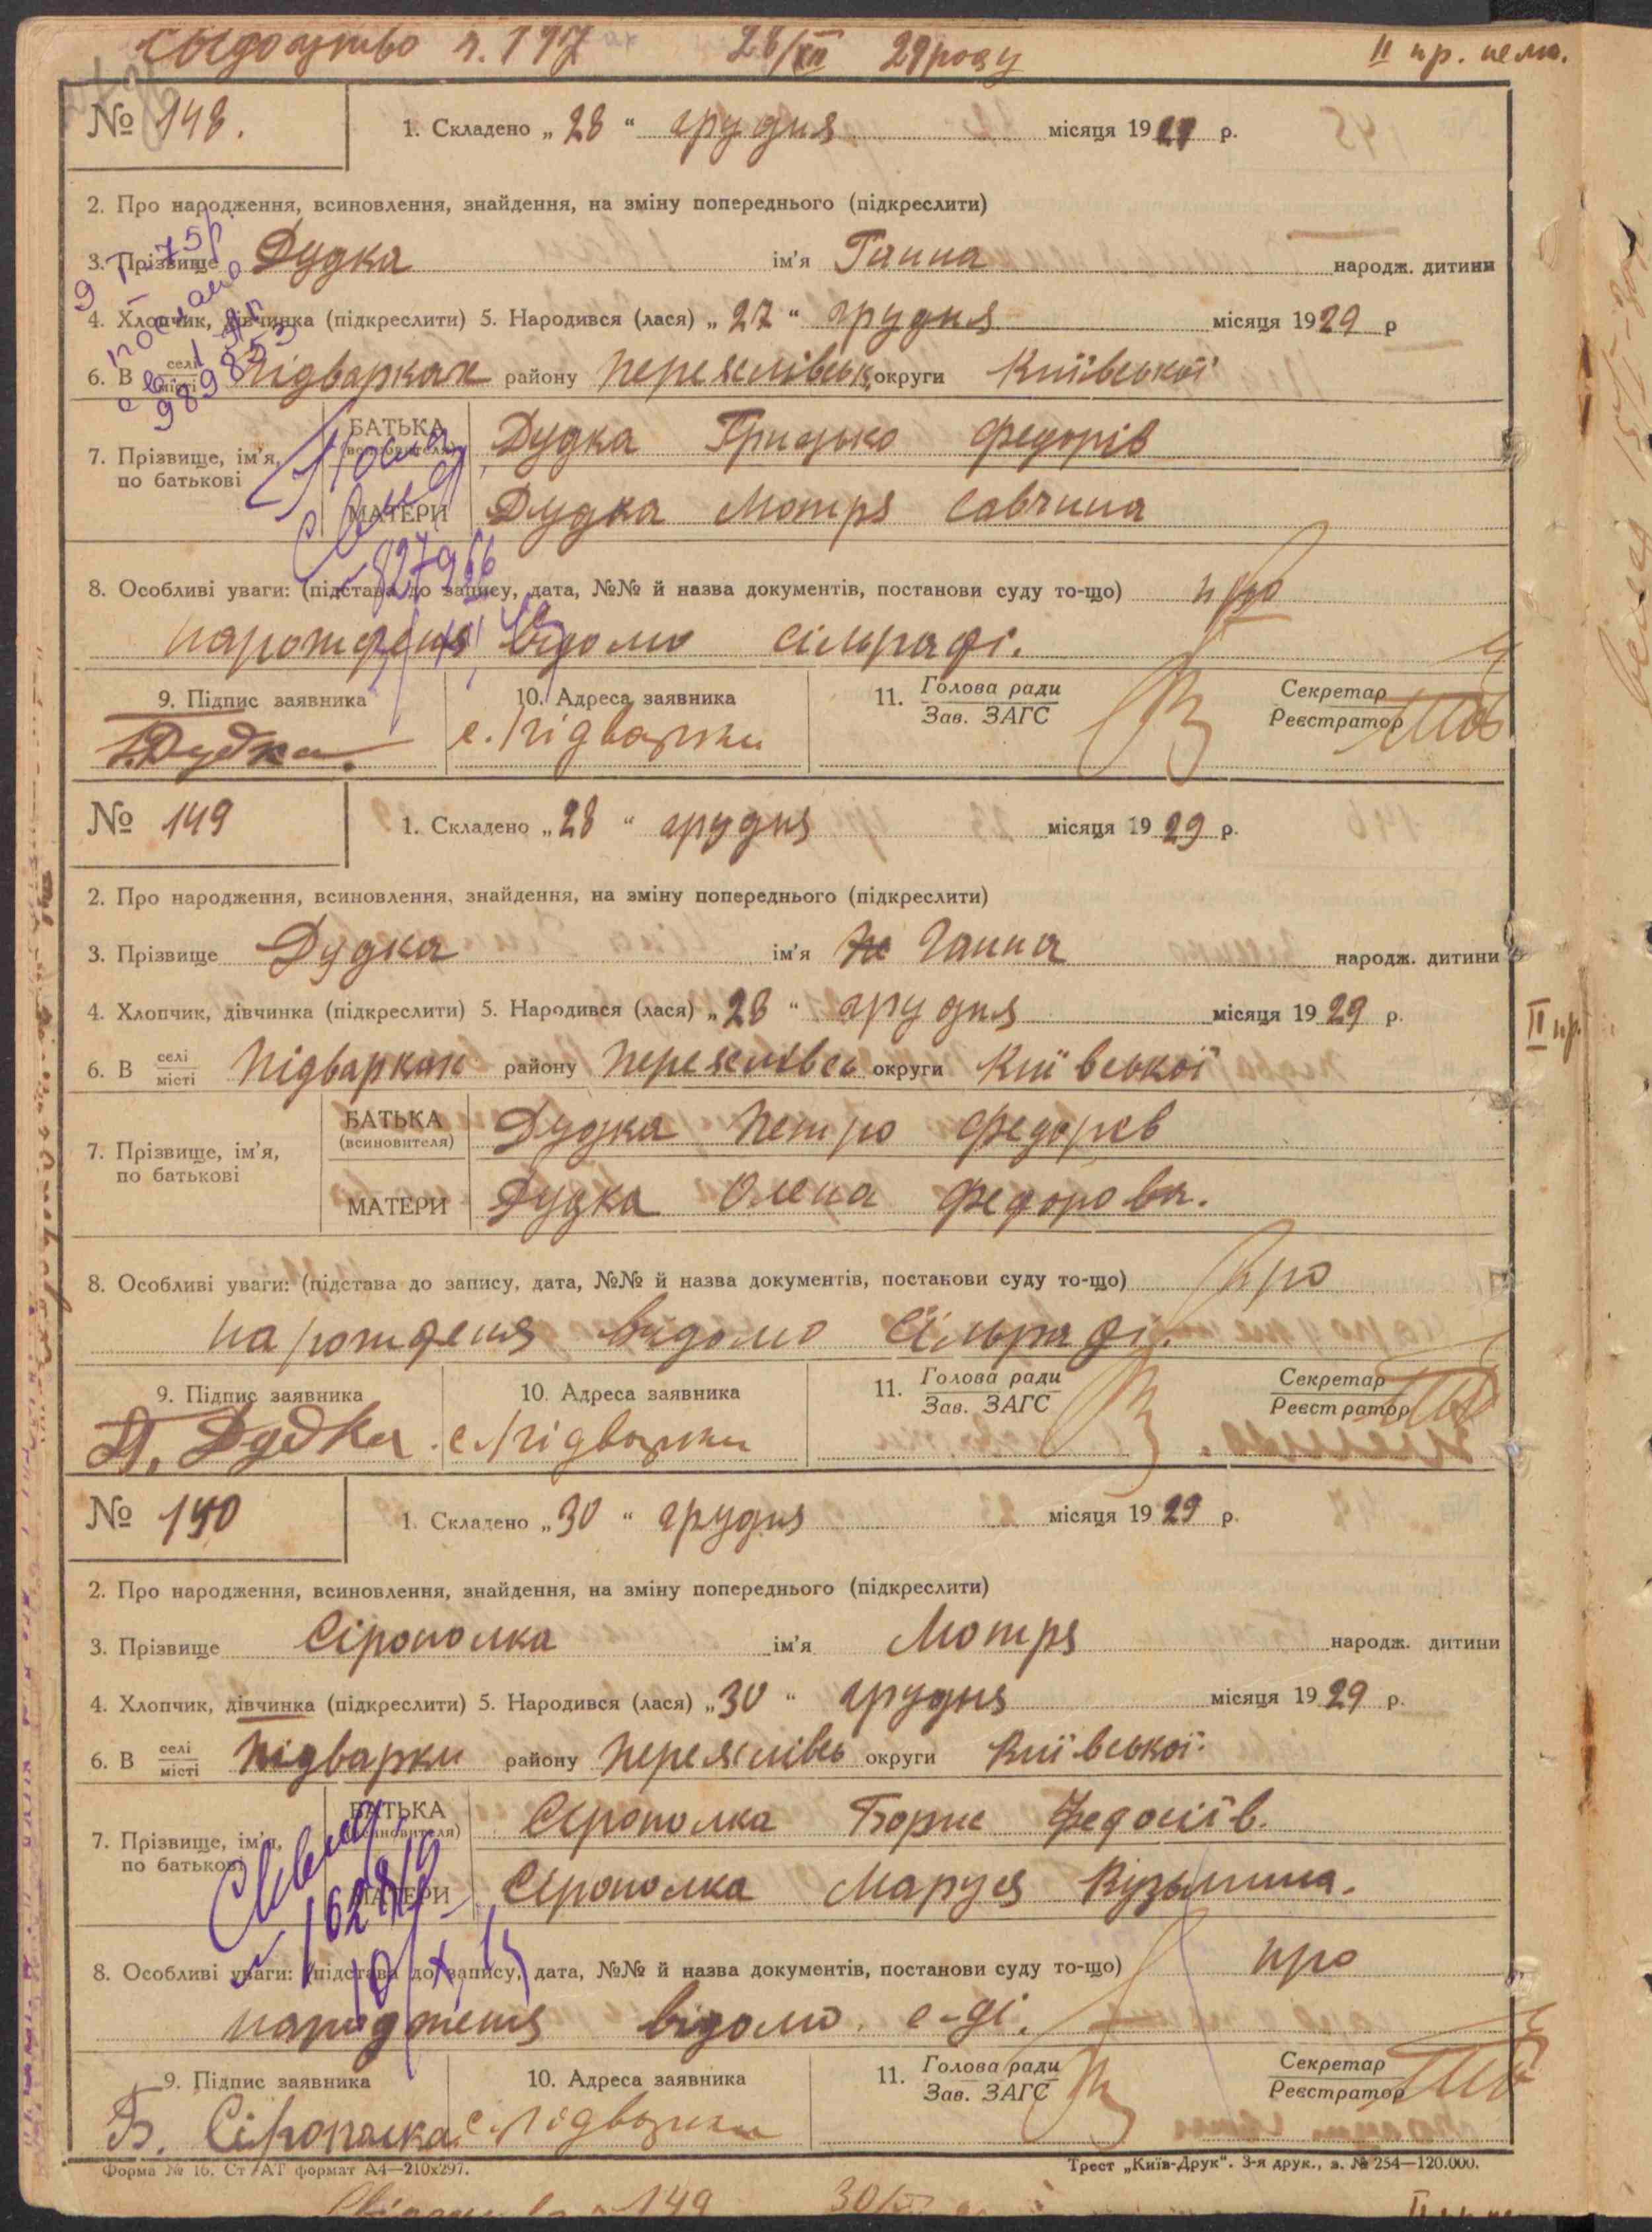 28/XII 29 року
II пр. нема.
№ 148.
1. Складено „ 28 “ грудня місяця 1929 р.
2. Про народження, всиновлення, знайдення, на зміну попереднього (підкреслити)
3. Прізвище Дудка ім’я Ганна народж. дитини
4. Хлопчик, дівчинка (підкреслити) 5. Народився (лася) „ 27 “ грудня місяця 1929 р
6. В селі місті Підварках району Переяслівськ округи Київської
7. Прізвище, ім’я, по батькові
БАТЬКА (всиновителя) Дудка Грицько Федорів
МАТЕРИ Дудка Мотря Савчина
8. Особливі уваги: (підстава до запису, дата, №№ й назва документів, постанови суду то-що) про
нарождення відомо сільраді.
9. Підпис заявника 10. Адреса заявника 11. Голова ради Зав. ЗАГС Секретар Реєстратор
Дудка. с. Підварки
№ 149
1. Складено „ 28 “ грудня місяця 1929 р.
2. Про народження, всиновлення, знайдення, на зміну попереднього (підкреслити)
3. Прізвище Дудка ім’я Ганна народж. дитини
4. Хлопчик, дівчинка (підкреслити) 5. Народився (лася) „ 28 “ грудня місяця 1929 р.
II пр.
6. В селі місті Підварках району Переяслівсь округи Київської
7. Прізвище, ім’я, по батькові
БАТЬКА (всиновителя) Дудка Петро Федорів
МАТЕРИ Дудка Олена Федорова.
8. Особливі уваги: (підстава до запису, дата, №№ й назва документів, постанови суду то-що) про
народженя відомо сільраді.
9. Підпис заявника 10. Адреса заявника 11. Голова ради Зав. ЗАГС Секретар Реєстратор
П. Дудка. с. Підварки
№ 150
1. Складено „ 30 “ грудня місяця 1929 р.
2. Про народження, всиновлення, знайдення, на зміну попереднього (підкреслити)
3. Прізвище Сірополка ім’я Мотря народж. дитини
4. Хлопчик, дівчинка (підкреслити) 5. Народився (лася) „ 30 “ грудня місяця 1929 р.
6. В селі місті Підварки району Переяслівсь округи Київської.
7. Прізвище, ім’я, по батькові
БАТЬКА (всиновителя) Сірополка Борис Федосіїв.
МАТЕРИ Сірополка Маруся Кузьмина.
8. Особливі уваги: (підстава до запису, дата, №№ й назва документів, постанови суду то-що) про
народженя відомо с-ді.
9. Підпис заявника 10. Адреса заявника 11. Голова ради Зав. ЗАГС Секретар Реєстратор
Б. Сірополка с. Підварки
Форма № 16. Ст АТ формат А4—210х297. Трест „Київ-Друк“. 3-я друк., з. № 254—120.000.
149